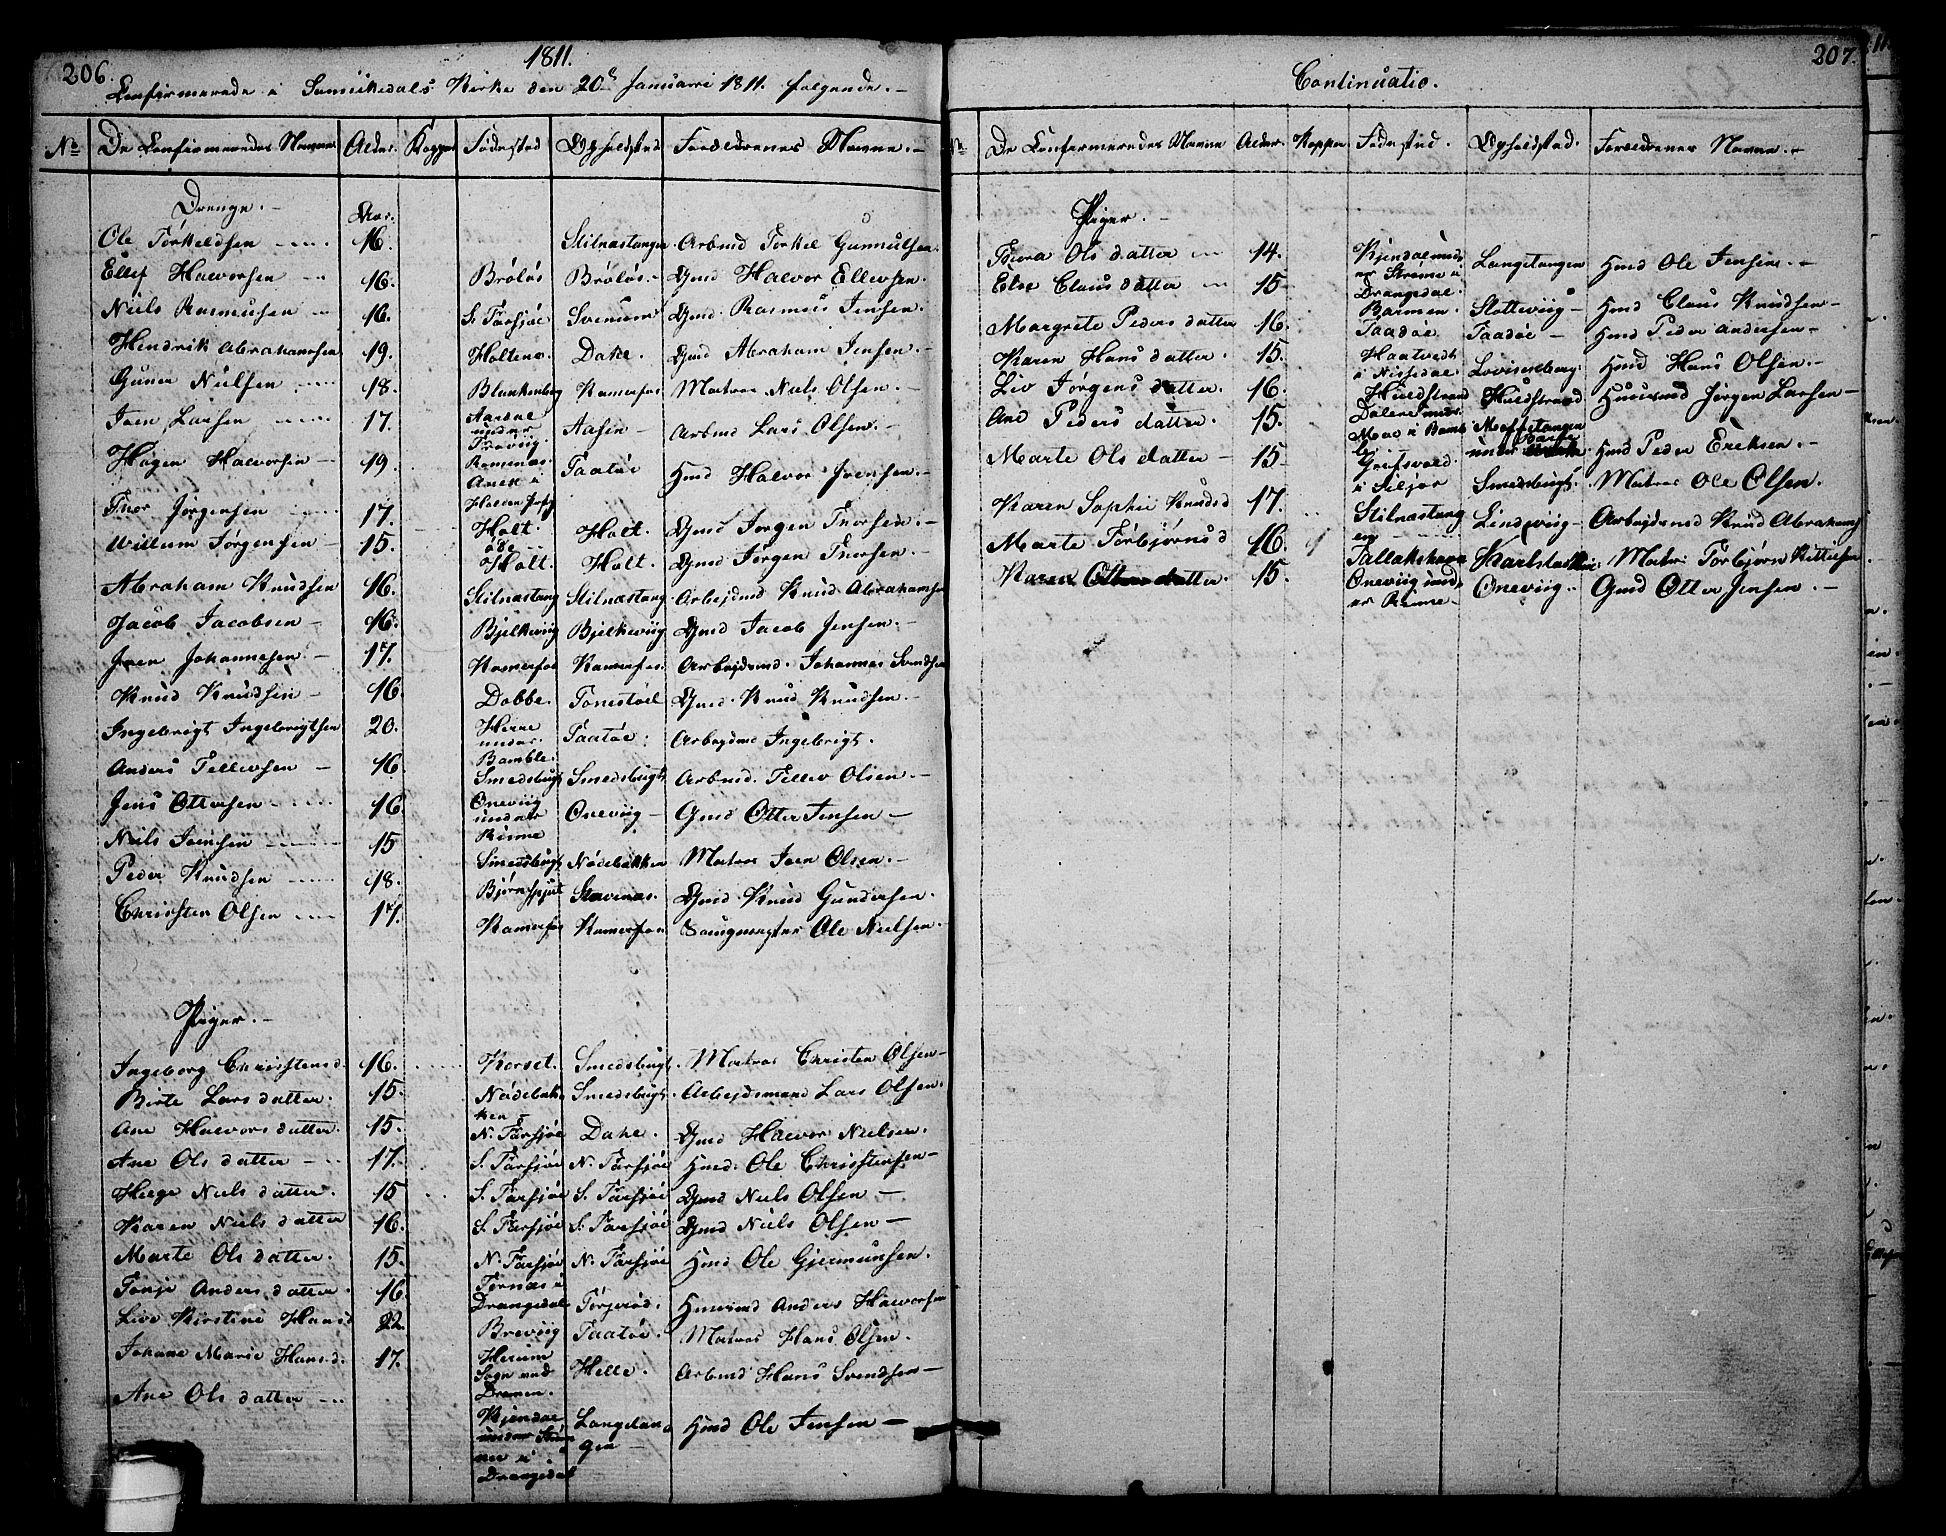 206.
1811.
Confirmerede i Sannikedals Kirke den 20de Januarii 1811. følgende.
No De Confirmeredes Navne Alder. Kopper Fødested Opholdsted Forældrenes Navne.
Drenge. Aar.
Ole Torkeldsen 16. Stilnastangen Arbmd Torkel Gunnulsen.
Ellef Halvorsen 16. Bröløs Bröløs Gmd Halvor Ellevsen.
Niels Rasmusen 16. S. Farsjøe Gmd. Rasmus Jensen.
Hindrik Abrahamsen 19. Holtene. Dahe. Gmd Abraham Jensen.
Nielsen 18. Blankenberg Kamerfos Matros Niels Olsen.
Joen Larsen 17. under Aasen Arbmd Lars Olsen.
Halvorsen 19. Taatøe Hmd Halvor Joensen.
Thor Jørgensen 17. Holt. Holt. Gmd Jørgen Thorsen.
Willum Jørgensen 15. Holt. Holt. Gmd Jørgen Thorsen.
Abraham Knudsen 16. Stilnastang Stilnastang Arbejdsmd Knud Abrahamsen
Jacob Jacobsen 16. Bjelkeviig Bjelkeviig Gmd Jacob Jensen.
Joen Johannesen 17. Kamerfos Kamerfos. Arbejdsmd. Johannes Svendsen
Knud Knudsen 16 Dobbe. Tonestøel Gmd Knud Knudsen.
Ingebrigt Ingebrigtsen 20. Herre under Bamble. Taatøe. Arbejdsmd Ingebrigt.
Anders Tellevsen 16 Smedsbugt Smedsbugt Arbmd. Tellev Olsen.
Jens Ottersen 16 Oneviig under Oneviig Gmd Otter Jensen
Niels Joensen 15 Smedsbugt Nødebakken Matros Joen Olsen.
Peder Knudsen 18. Stavenas. Gmd Knud Gundersen.
Christen Olsen 17. Kamerfos Kamerfos Ole Nielsen.
Piger.
Ingeborg Christensd 16. Korset. Smedsbugt. Matros Christen Olsen
Birte Lars datter. 15. Nødebakken Smedsbugt. Arbejdsmand Lars Olsen.
Ane Halvors datter. 15. N. Farsjøe Dahe. Gmd Halvor Nielsen.
Ane Ols datter 17. S. Farsjøe N. Farsjøe Hmd. Ole Christensen
Helge Niels datter. 15 S. Farsjøe S. Farsjøe Gmd Niels Olsen
Karen Niels datter 16. S. Farsjøe S. Farsjøe Gmd Niels Olsen
Marte Ols datter. 15. N. Farsjøe N. Farsjøe Hmd Ole Gjermunsen.
Tonje Anders datter. 16. Tornas i Drangedal Torjerød. Huusmd Anders Halvorsen
Live Kirstine Hansd 22. Breviig Taatøe. Matros Hans Olsen.
Johane Marie Hansd. 17. Sogn ved Dramen. Helle. Arbmd Hans Svendsen
Ane Ols datter Kjendal under i Drangedal Langetangen Hmd Ole Jensen
207.
Continuatio.
De Confirmeredes Navne Alder. Kopper Fødested. Opholdsted. Forældrenes Navne.
Piger.
Ols datter 14. Kjendal under Strøme i Drangedal. Langetangen Hmd Ole Jensen.
Else Claus datter 15 Barmen. Slotteviig Hmd Claus Knudsen
Margrete Peders datter 16. Taadøe Taadøe Hmd Peder Andersen
Karen Hans datter. 15. i Nissedal Lovisenberg. Hmd Hans Olsen.
Liv Jørgens datter. 16. Huldstrand Huldstrand Huusmd Jørgen Larsen
Ane Peders datter. 15. Hmd Peder Eriksen.
Marte Ols datter 15 i Siljor Smedsbugt. Matros Ole Olsen.
Karen Sophie Knudsd 17. Stilnastangen Lindeviig Arbejdsmd Knud Abrahams
Marte Torbjørnsd 16. Karlstadt Matros Torbjørn Kittilsen
Karen Otters datter. 15. Oneviig under Oneviig. Gmd Otter Jensen.